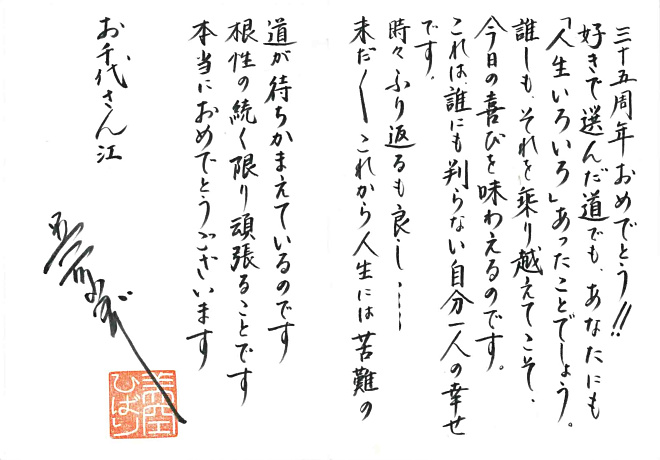 三十五周年おめでとう!!
好きで選んだ道でも、あなたにも
「人生いろいろ」あったことでしょう。
誰しも、それを乗り越えてこそ、
今日の喜びを味わえるのです。
これは、誰にも判らない自分一人の幸せ
です。
時々ふり返るも良し……
未だ〱これから人生には苦難の
道が待ちかまえているのです
根性の続く限り頑張ることです
本当におめでとうございます
お千代さん江
美空
ひばり